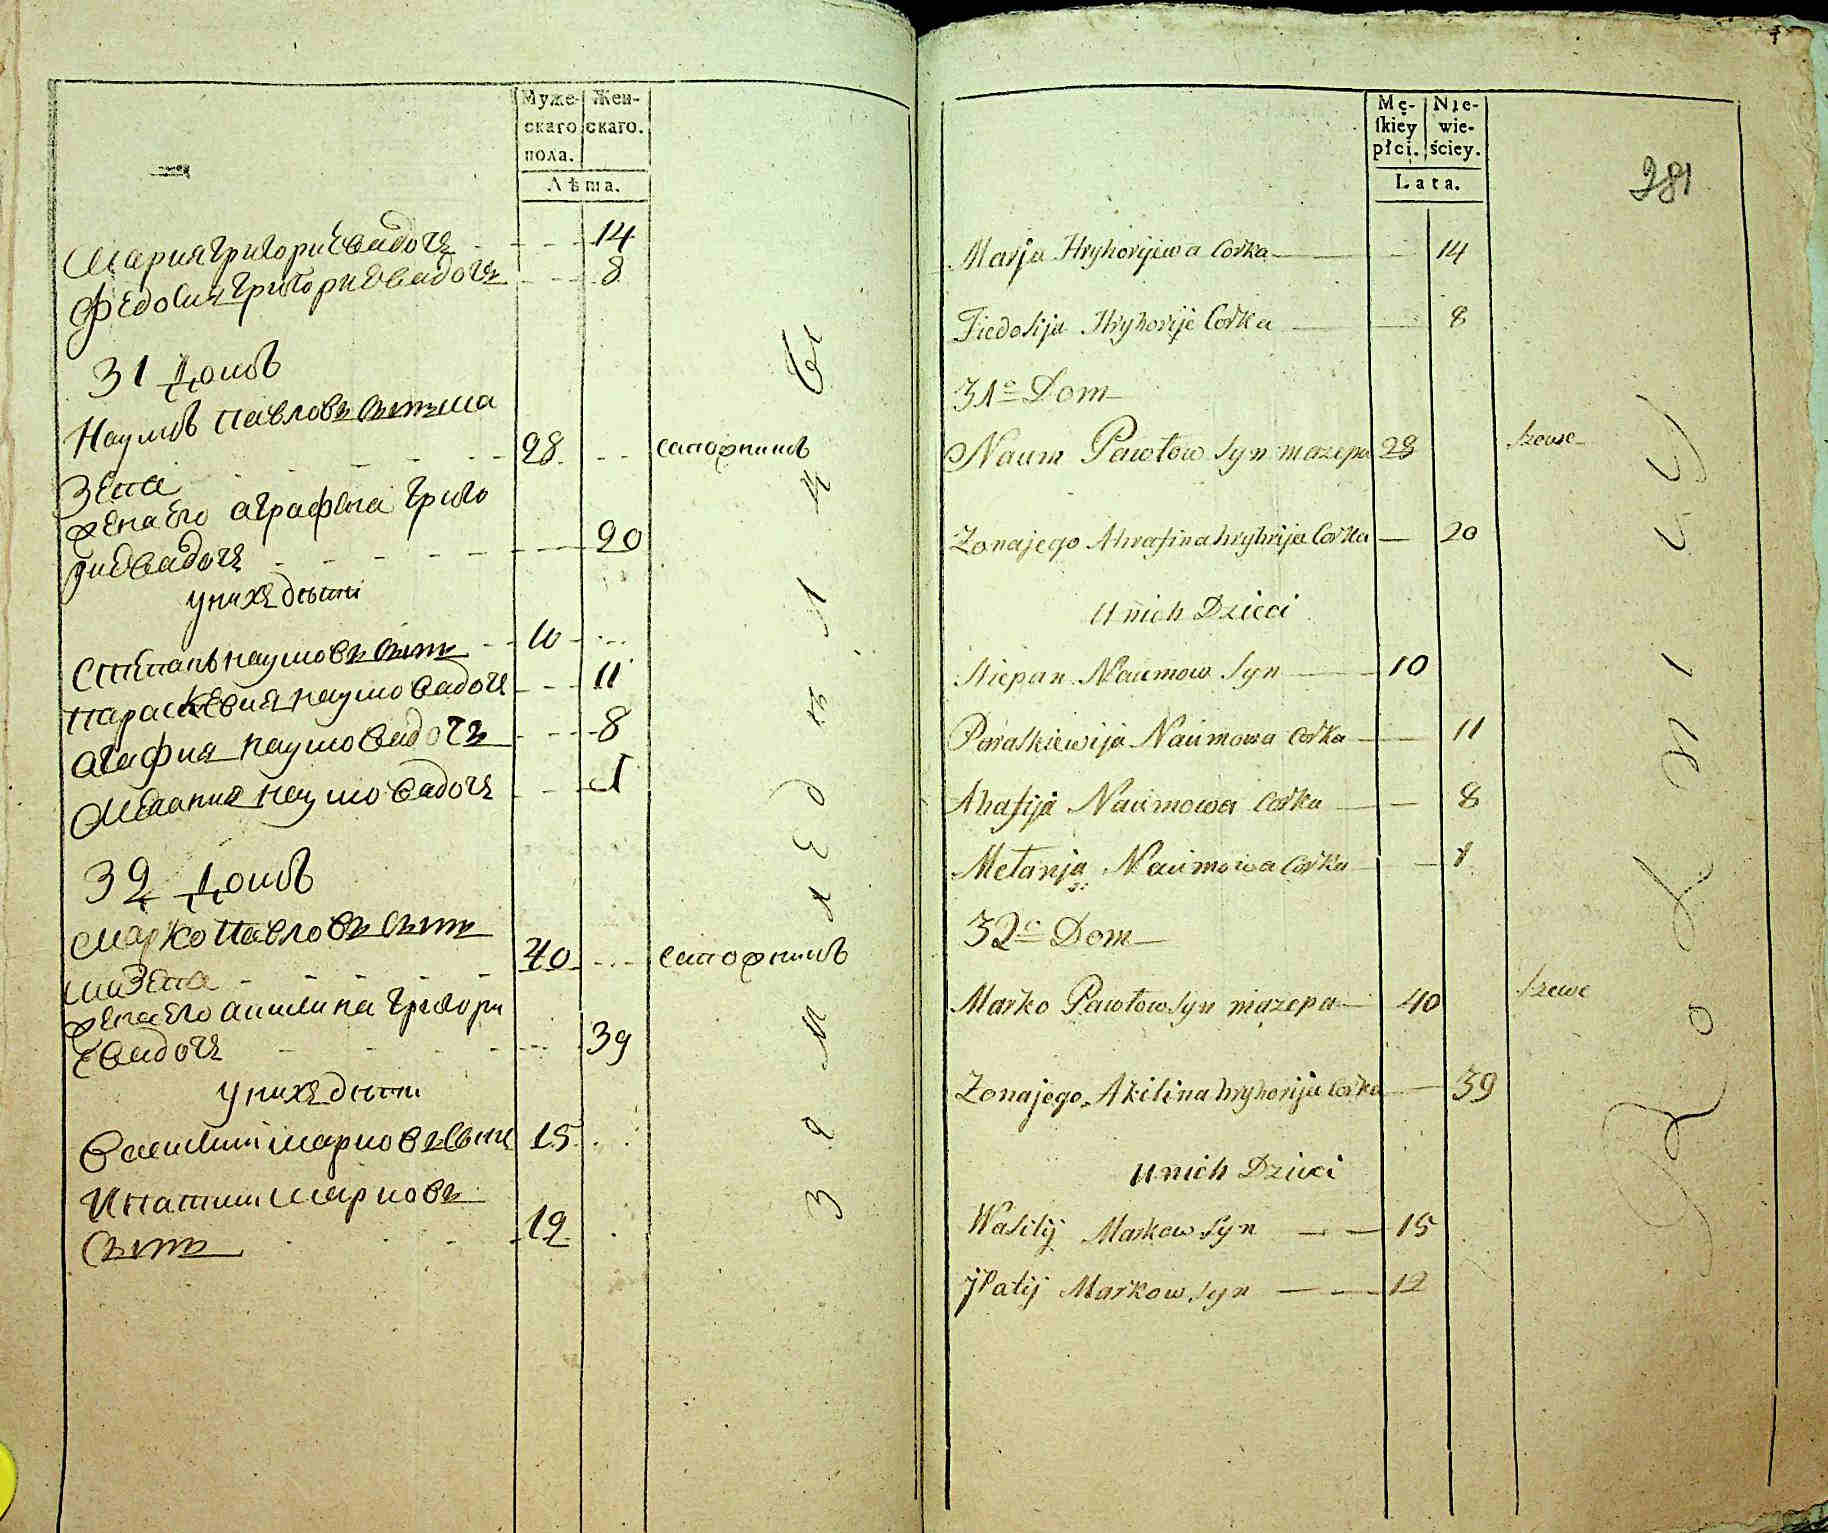 Муже-
скаго
пола.
Жен-
скаго.
Лѣта.
Мария григориевадочь 14
Федосия григориевадочь 8
31 домъ
Наумъ павловъ сынъ ма
зепа 28 сапожникъ
жена его аграфена григо
риевадочь 20
у нихъ дѣти
Степанъ наумовъ сынъ 10
параскевия наумовадочь 11
агафия наумовадочь 8
Мелания наумовадочь 1
32 домъ
Марко павловъ сынъ
мазепа 40 сапожникъ
жена его акилина григори
евадочь 39
у нихъ дѣти
Василии марковъ сынъ 15
Ипатии марковъ
сынъ 12
земледѣлцы
Mę-
skiey
płci.
Nie-
wie-
ściey.
Lata.
281
Marja Hryhorijewa Corka 14
Fiedosija Hryhorije Corka 8
31c Dom
Naum Pawłow Syn mazepa 28 szewc
Zonajego Ahrafina hryhrija Corka 20
U nich Dzieci
Stiepan Naumow Syn 10
Paraskiewija Naumowa Corka 11
Ahafija Naumowa Corka 8
Mełanja Naumowa Corka 1
32c Dom
Marko Pawłow Syn mazepa 40 szewc
Zonajego Akilina hryhorija Corka 39
U nich Dzieci
Wasilij Markow Syn 15
Jpatij Markow Syn 12
Rolnicy